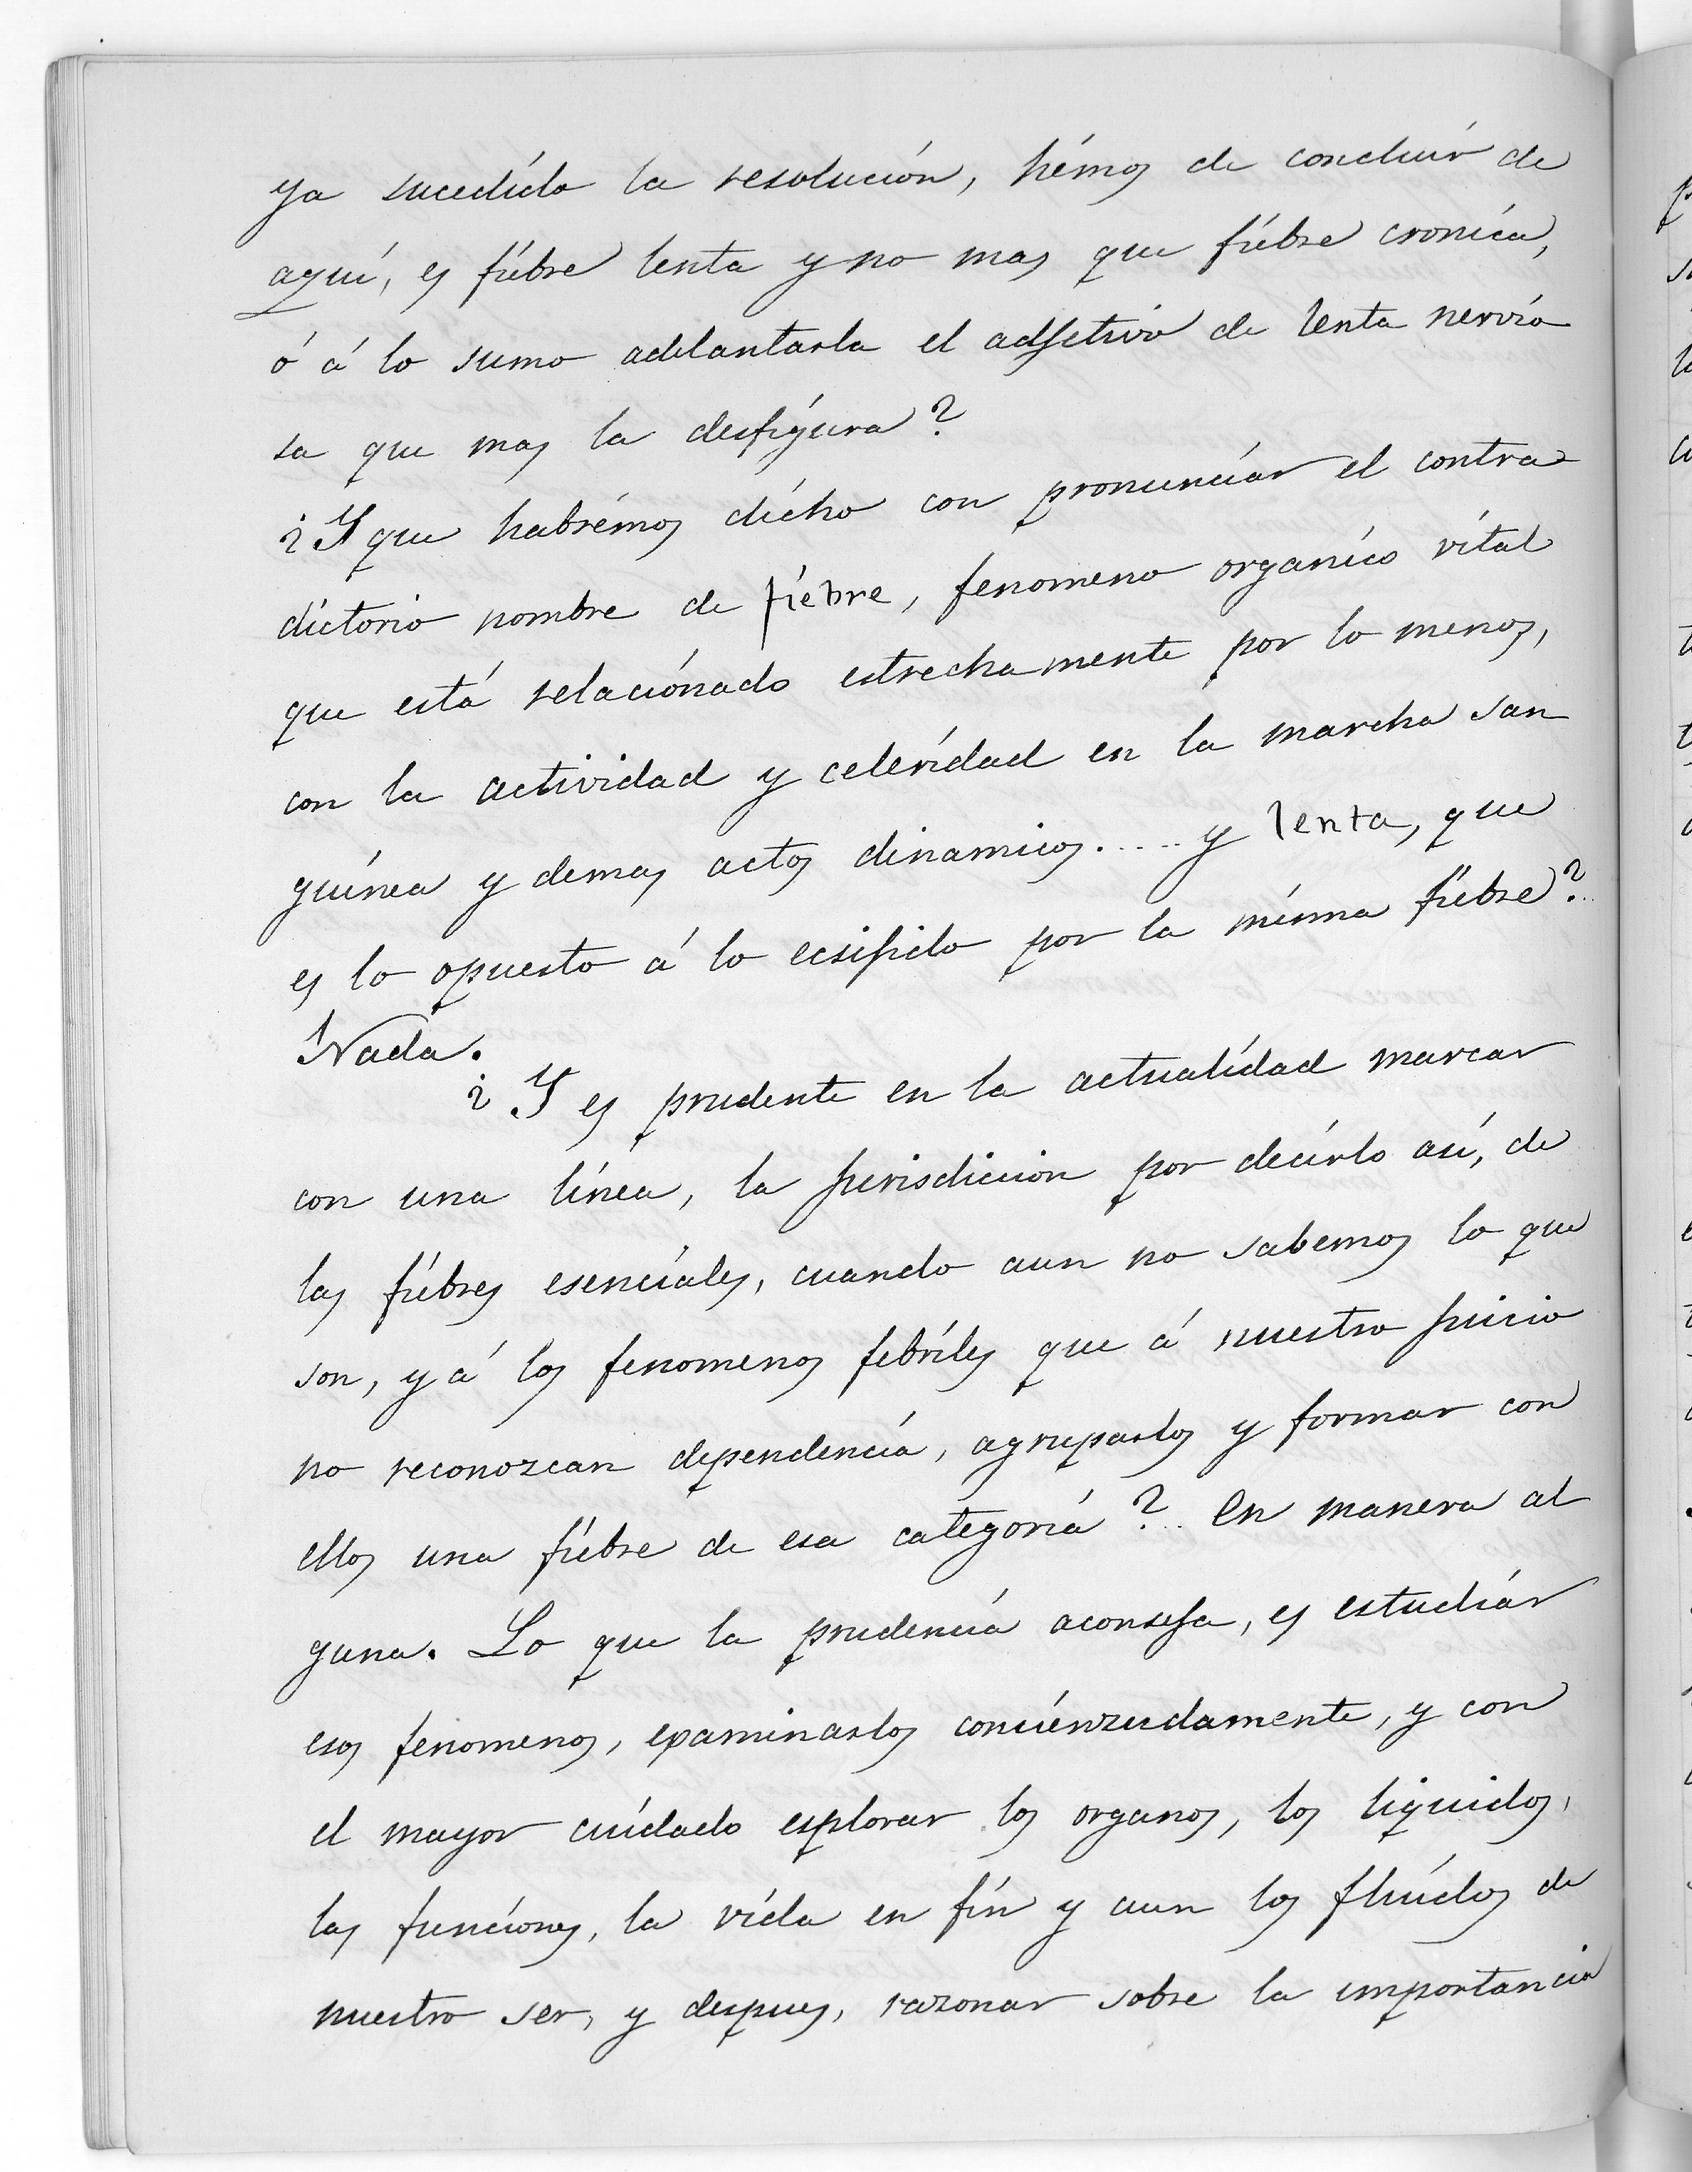 ya sucedído la resolución, hémos de concluír de
aquí, es fiébre lenta y no mas que fiébre croníca,
ó á lo sumo adelantarla el adjetivo de lenta nervio
sa que mas la desfigúra?
¿Y que habrémos dícho con pronuncíar el contra
dictorio nombre de fiebre, fenomeno organíco vítal
que está relaciónado estrechamente por lo menos,
con la actividad y celerídad en la marcha san
guínea y demas actos dinamicos..... y lenta, que
es lo opuesto á lo ecsijido por la mísma fiébre?..
Nada.
¿Y es prudente en la actualídad marcar
con una línea, la jurisdicion por decírlo así, de
las fiébres esencíales, cuando aun no sabemos lo que
son, y á los fenomenos febríles que á nuestro juicio
no reconozcan dependencía, agruparlos y formar con
ellos una fiébre de esa categoría?.. En manera al
guna. Lo que la prudencía aconseja, es estudiár
esos fenomenos, examinarlos conciénzudamente, y con
el mayor cuídado esplorar los organos, los liquidos,
las funcíones, la vída en fín y aun los fluídos de
nuestro ser, y despues, razonar sobre la importancia